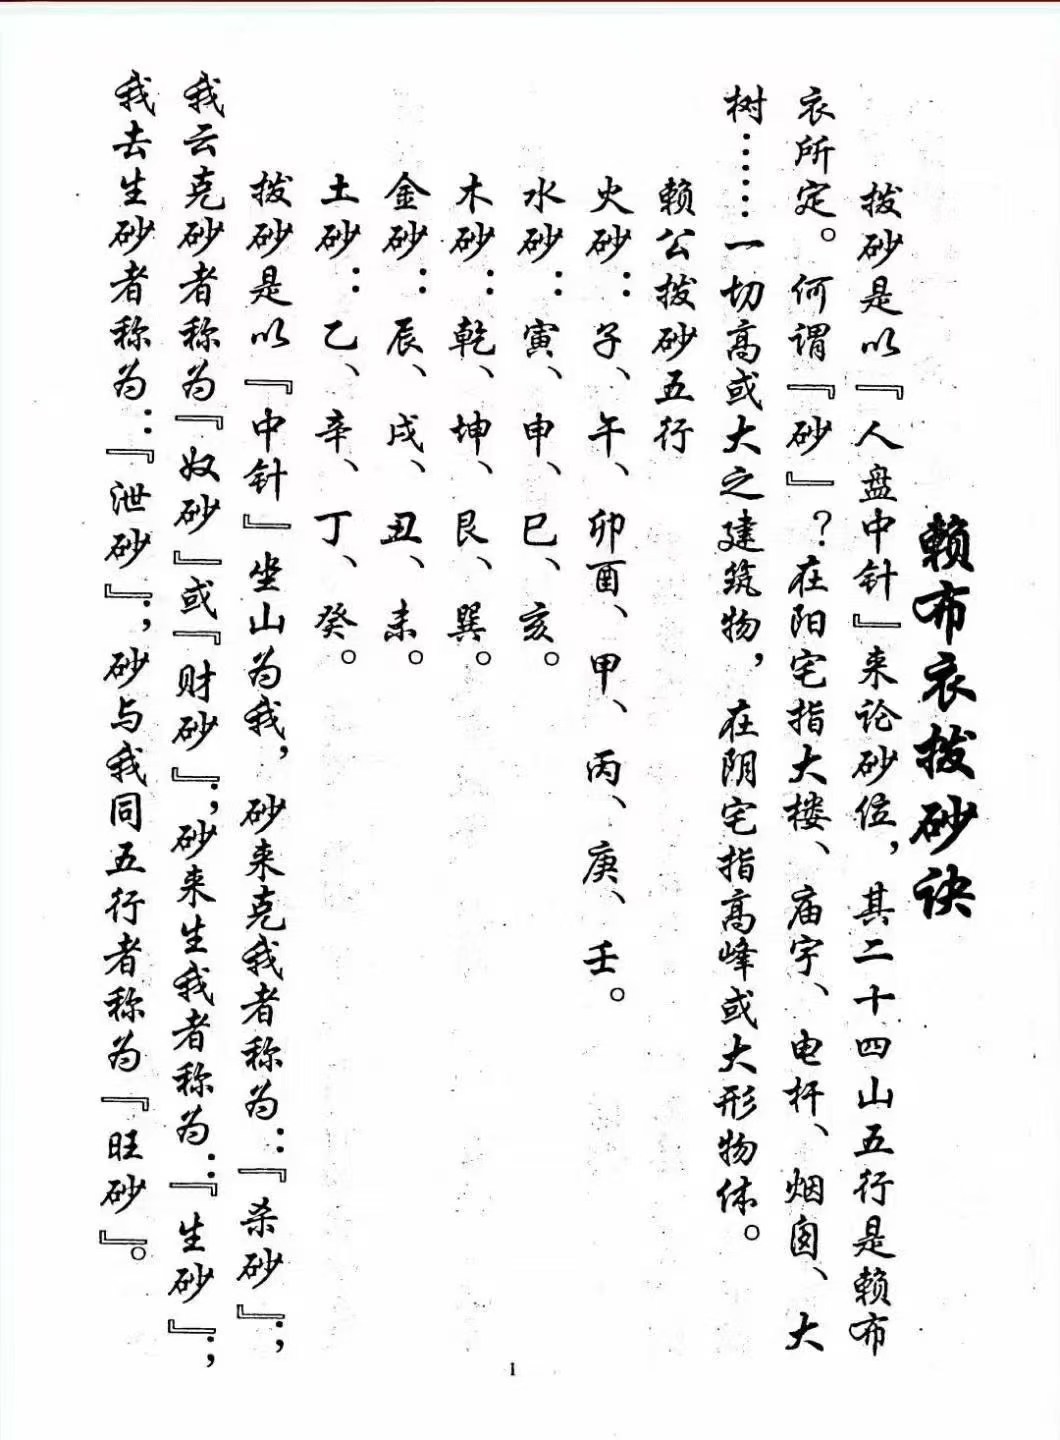 赖布衣拨砂诀
拨砂是以『人盘中针』来论砂位，其二十四山五行是赖布
衣所定。何谓『砂』？在阳宅指大楼、庙宇、电杆、烟囱、大
树……一切高或大之建筑物，在阴宅指高峰或大形物体。
赖公拨砂五行
火砂：子、午、卯酉、甲、丙、庚、壬。
水砂：寅、申、巳、亥。
木砂：乾、坤、艮、巽。
金砂：辰、戌、丑、未。
土砂：乙、辛、丁、癸。
拨砂是以『中针』坐山为我，砂来克我者称为：『杀砂』；
我云克砂者称为『奴砂』或『财砂』；砂来生我者称为：『生砂』；
我去生砂者称为：『泄砂』；砂与我同五行者称为『旺砂』。
1